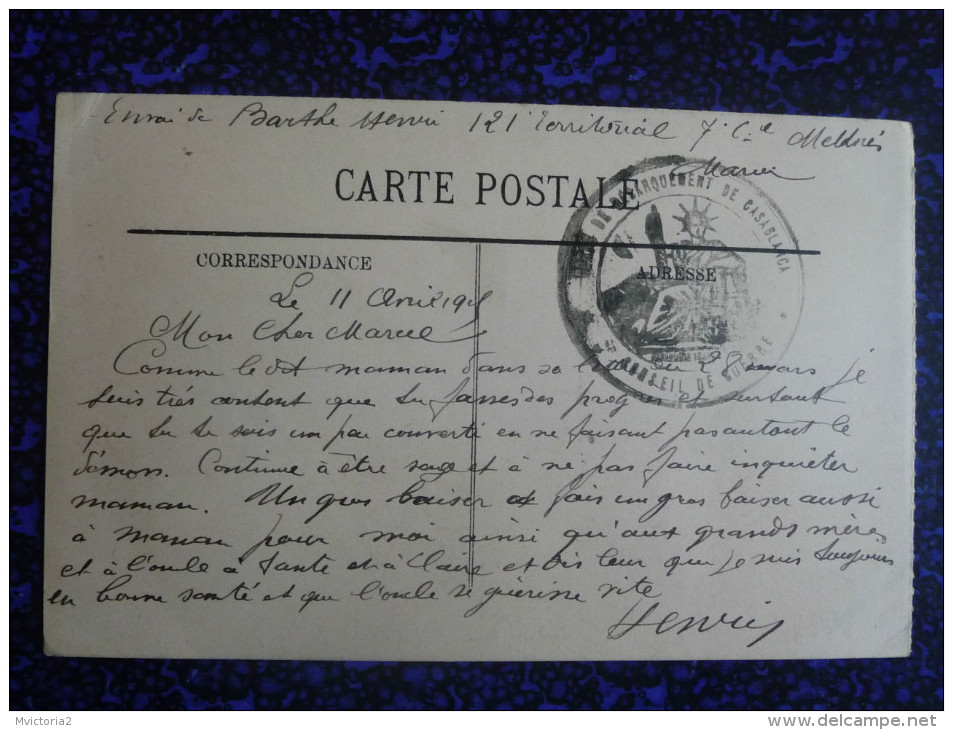 Envoi de Barthe Henri 121e Territorial 7e Cie Meknès
Maroc
CARTE POSTALE
DE DEBARQUEMENT DE CASABLANCA
* CONSEIL DE GUERRE *
CORRESPONDANCE
ADRESSE
Le 11 Avril 191
Mon Cher Marcel
Comme le dit maman dans sa du 28 mars je
suis très content que tu fasses des progrès et surtout
que tu te sois un peu converti en ne faisant pas autant le
démon. Continue à être sage et à ne pas faire inquiéter
maman. Un gros baiser et fais un gros baiser aussi
à maman pour moi ainsi qu'aux grands mères
et à l'oncle à tante et à Claire et dis leur que je suis toujours
en bonne santé et que l'oncle se guérisse vite
Henri
Mvictoria2
www.delcampe.net